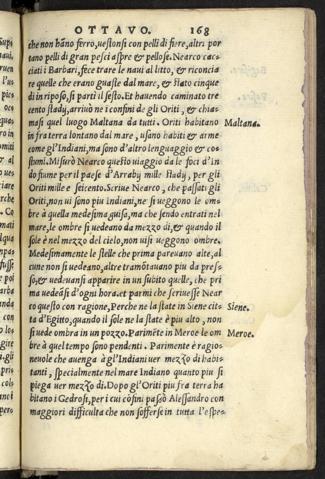 OTTAVO. 168
che non hāno ferro, uestonsi con pelli di fiere, altri por
tano pelli di gran pesci aspre & pelose. Nearco cac-
ciati i Barbari, fece trare le naui al litto, & riconcia
re quelle che erano guaste dal mare, & stato cinque
dì in riposo, si partì il sesto. Et hauendo caminato tre
cento stady, arriuò ne i confini de gli Oriti, & chia-
masi quel luogo Maltana da tutti. Oriti habitano
Maltana.
in fra terra lontano dal mare, usano habiti & arme
come gl'Indiani, ma sono d'altro lenguaggio & co-
stumi. Misurò Nearco questo uiaggio da le foci d'In
do fiume per il paese d'Arraby mille stady, per gli
Oriti mille e seicento. Scriue Nearco, che passati gli
Oriti, non ui sono piu Indiani, ne si ueggono le om-
bre à quella medesima guisa, ma che iendo entrati nel
mare, le ombre si uedeano da mezo dì, & quando il
sole è nel mezo del cielo, non ui si ueggono ombre.
Medesimamente le stelle che prima pareuano alte, al
cune non si uedeano, altre tramōtauano piu da pres-
so, & uedeuansi apparire in un subito quelle, che pri
ma uedeāsi d'ogni hora. et parmi che scriuesse Near
co questo con ragione, Perche ne la state in Siene cit-
Siene.
tà d'Egitto, quando il sole ne la state è piu alto, non
si uede ombra in un pozzo. Parimēte in Meroe le om
Meroe.
bre à quel tempo sono pendenti. Parimente è ragio-
neuole che auenga à gl'Indiani uer mezzo dì habi-
tanti, specialmente nel mare Indiano quanto piu si
piega uer mezzo dì. Dopo gl'Oriti piu fra terra ha
bitano i Gedrosi, per i cui cōfini passò Alessandro con
maggiori difficulta che non sofferse in tutta l'espe-